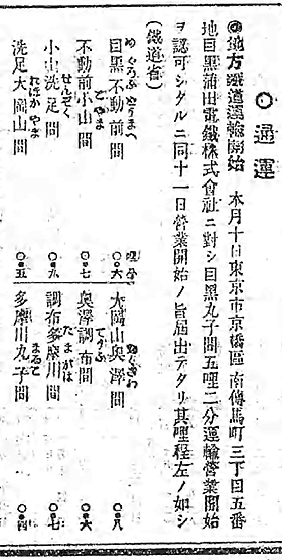 ○通運
◎地方鐵道運輸開始 本月十日東京市京橋區南傳馬町三丁目五番
地目黑蒲田電鐵株式會社ニ對シ目黑丸子間五哩二分運輸營業開始
ヲ認可シタルニ同十一日營業開始ノ旨屆出テタリ其哩程左ノ如シ
(鐵道省)
めぐろふどうまへ
目黑不動前間 哩分 〇・六
こやま
不動前小山間 〇・七
せんぞく
小山洗足間 〇・九
洗足大岡山間 〇・五
大岡山奧澤間 〇・八
てうふ
奧澤調布間 〇・六
たまがは
調布多摩川間 〇・七
まるこ
多摩川丸子間 〇・四